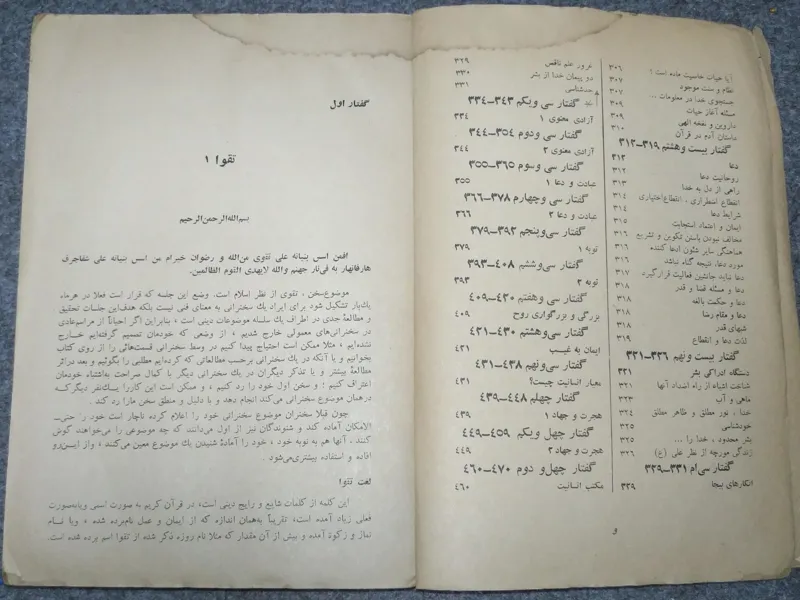 آیا حیات خاصیت ماده است ؟ ۳۰۶
نظام و سنت موجود ۳۰۷
جستجوی خدا در معلومات ... ۳۰۷
مسئله آغاز حیات ۳۰۹
داروین و نفخه الهی ۳۰۹
داستان آدم در قرآن ۳۱۰
گفتار بیست وهشتم ۳۱۹-۳۱۲
دعا ۳۱۲
روحانیت دعا ۳۱۲
راهی از دل به خدا ۳۱۳
انقطاع اضطراری ، انقطاع‌اختیاری ۳۱۴
شرایط دعا ۳۱۴
ایمان و اعتماد استجابت ۳۱۵
مخالف نبودن باسنن تکوین و تشریع ۳۱۶
هماهنگی سایر شئون دعا کننده ۳۱۶
مورد دعا، نتیجه گناه نباشد ۳۱۶
دعا نباید جانشین فعالیت قرارگیرد ۳۱۷
دعا و مسئله قضا و قدر ۳۱۸
دعا و حکمت بالغه ۳۱۸
دعا و مقام رضا ۳۱۸
شبهای قدر ۳۱۸
لذت دعا و انقطاع ۳۱۹
گفتار بیست و نهم ۳۲۶-۳۲۱
دستگاه ادراکی بشر ۳۲۱
شناخت اشیاء از راه اضداد آنها ۳۲۱
ماهی و آب ۳۲۳
خدا ، نور مطلق و ظاهر مطلق ۳۲۴
خودشناسی ۳۲۵
بشر محدود ، خدا را ... ۳۲۵
زندگی مورچه از نظر علی (ع) ۳۲۶
گفتار سی‌ام ۳۳۱-۳۲۹
انکارهای بیجا ۳۲۹
غرور علم ناقص ۳۲۹
دو پیمان خدا از بشر ۳۳۰
حدشناسی ۳۳۱
گفتار سی ویکم ۳۴۳-۳۳۴
آزادی معنوی ۱ ۳۳۴
گفتار سی ودوم ۳۵۴-۳۴۴
آزادی معنوی ۲ ۳۴۴
گفتار سی وسوم ۳۶۵-۳۵۵
عبادت و دعا ۱ ۳۵۵
گفتار سی وچهارم ۳۷۸-۳۶۶
عبادت و دعا ۲ ۳۶۶
گفتار سی‌وپنجم ۳۹۲-۳۷۹
توبه ۱ ۳۷۹
گفتار سی‌وششم ۴۰۸-۳۹۳
توبه ۲ ۳۹۳
گفتار سی و هفتم ۴۲۰-۴۰۹
بزرگی و بزرگواری روح ۴۰۹
گفتار سی‌وهشتم ۴۳۰-۴۲۱
ایمان به غیب ۴۲۱
گفتار سی‌ونهم ۴۳۸-۴۳۱
معیار انسانیت چیست؟ ۴۳۱
گفتار چهلم ۴۴۸-۴۳۹
هجرت و جهاد ۱ ۴۳۹
گفتار چهل ویکم ۴۵۹-۴۴۹
هجرت و جهاد ۲ ۴۴۹
گفتار چهل‌و دوم ۴۷۰-۴۶۰
مکتب انسانیت ۴۶۰
و
گفتار اول
تقوا ۱
بسم‌الله‌الرحمن‌الرحیم
افمن اسس بنیانه علی تقوی من‌الله و رضوان خیرام من اسس بنیانه علی شفاجرف
هارفانهار به فی‌نار جهنم والله لایهدی القوم الظالمین.
موضوع‌سخن ، تقوی از نظر اسلام است. وضع این جلسه که قرار است فعلا در هرماه
یک‌بار تشکیل شود برای ایراد یک سخنرانی به معنای فنی نیست بلکه هدف‌این جلسات تحقیق
و مطالعهٔ جدی در اطراف یک سلسله موضوعات دینی است ؛ بنابراین اگر احیاناً از مراسم‌عادی
در سخنرانی‌های معمولی خارج شدیم ، از وضعی که خودمان تصمیم گرفته‌ایم خارج
نشده‌ایم ، مثلا ممکن است احتیاج پیدا کنیم در وسط سخنرانی قسمت‌هائی را از روی کتاب
بخوانیم و یا آنکه در یک سخنرانی برحسب مطالعاتی که کرده‌ایم مطلبی را بگوئیم و بعد دراثر
مطالعهٔ بیشتر و یا تذکر دیگران در یک سخنرانی دیگر با کمال صراحت به‌اشتباه خودمان
اعتراف کنیم ؛ و سخن اول خود را رد کنیم ، و ممکن است این کاررا یک‌نفر دیگرکه
درهمان موضوع سخنرانی می‌کند انجام دهد و با دلیل و منطق سخن مارا رد کند.
چون قبلا سخنران موضوع سخنرانی خود را اعلام کرده ناچار است خود را حتی‌ـ
الامکان آماده کند و شنوندگان نیز از اول می‌دانند که چه موضوعی را می‌خواهند گوش
کنند ، آنها هم به نوبه خود ، خود را آمادهٔ شنیدن یک موضوع معین می‌کنند ، واز این‌رو
افاده و استفاده بیشتری‌می‌شود .
لغت تقوا
این کلمه از کلمات شایع و رایج دینی است، در قرآن کریم به صورت اسمی ویابه‌صورت
فعلی زیاد آمده است، تقریباً به‌همان اندازه که از ایمان و عمل نام‌برده شده ، ویا نام
نماز و زکوة آمده و بیش از آن مقدار که مثلا نام روزه ذکر شده از تقوا اسم برده شده است.